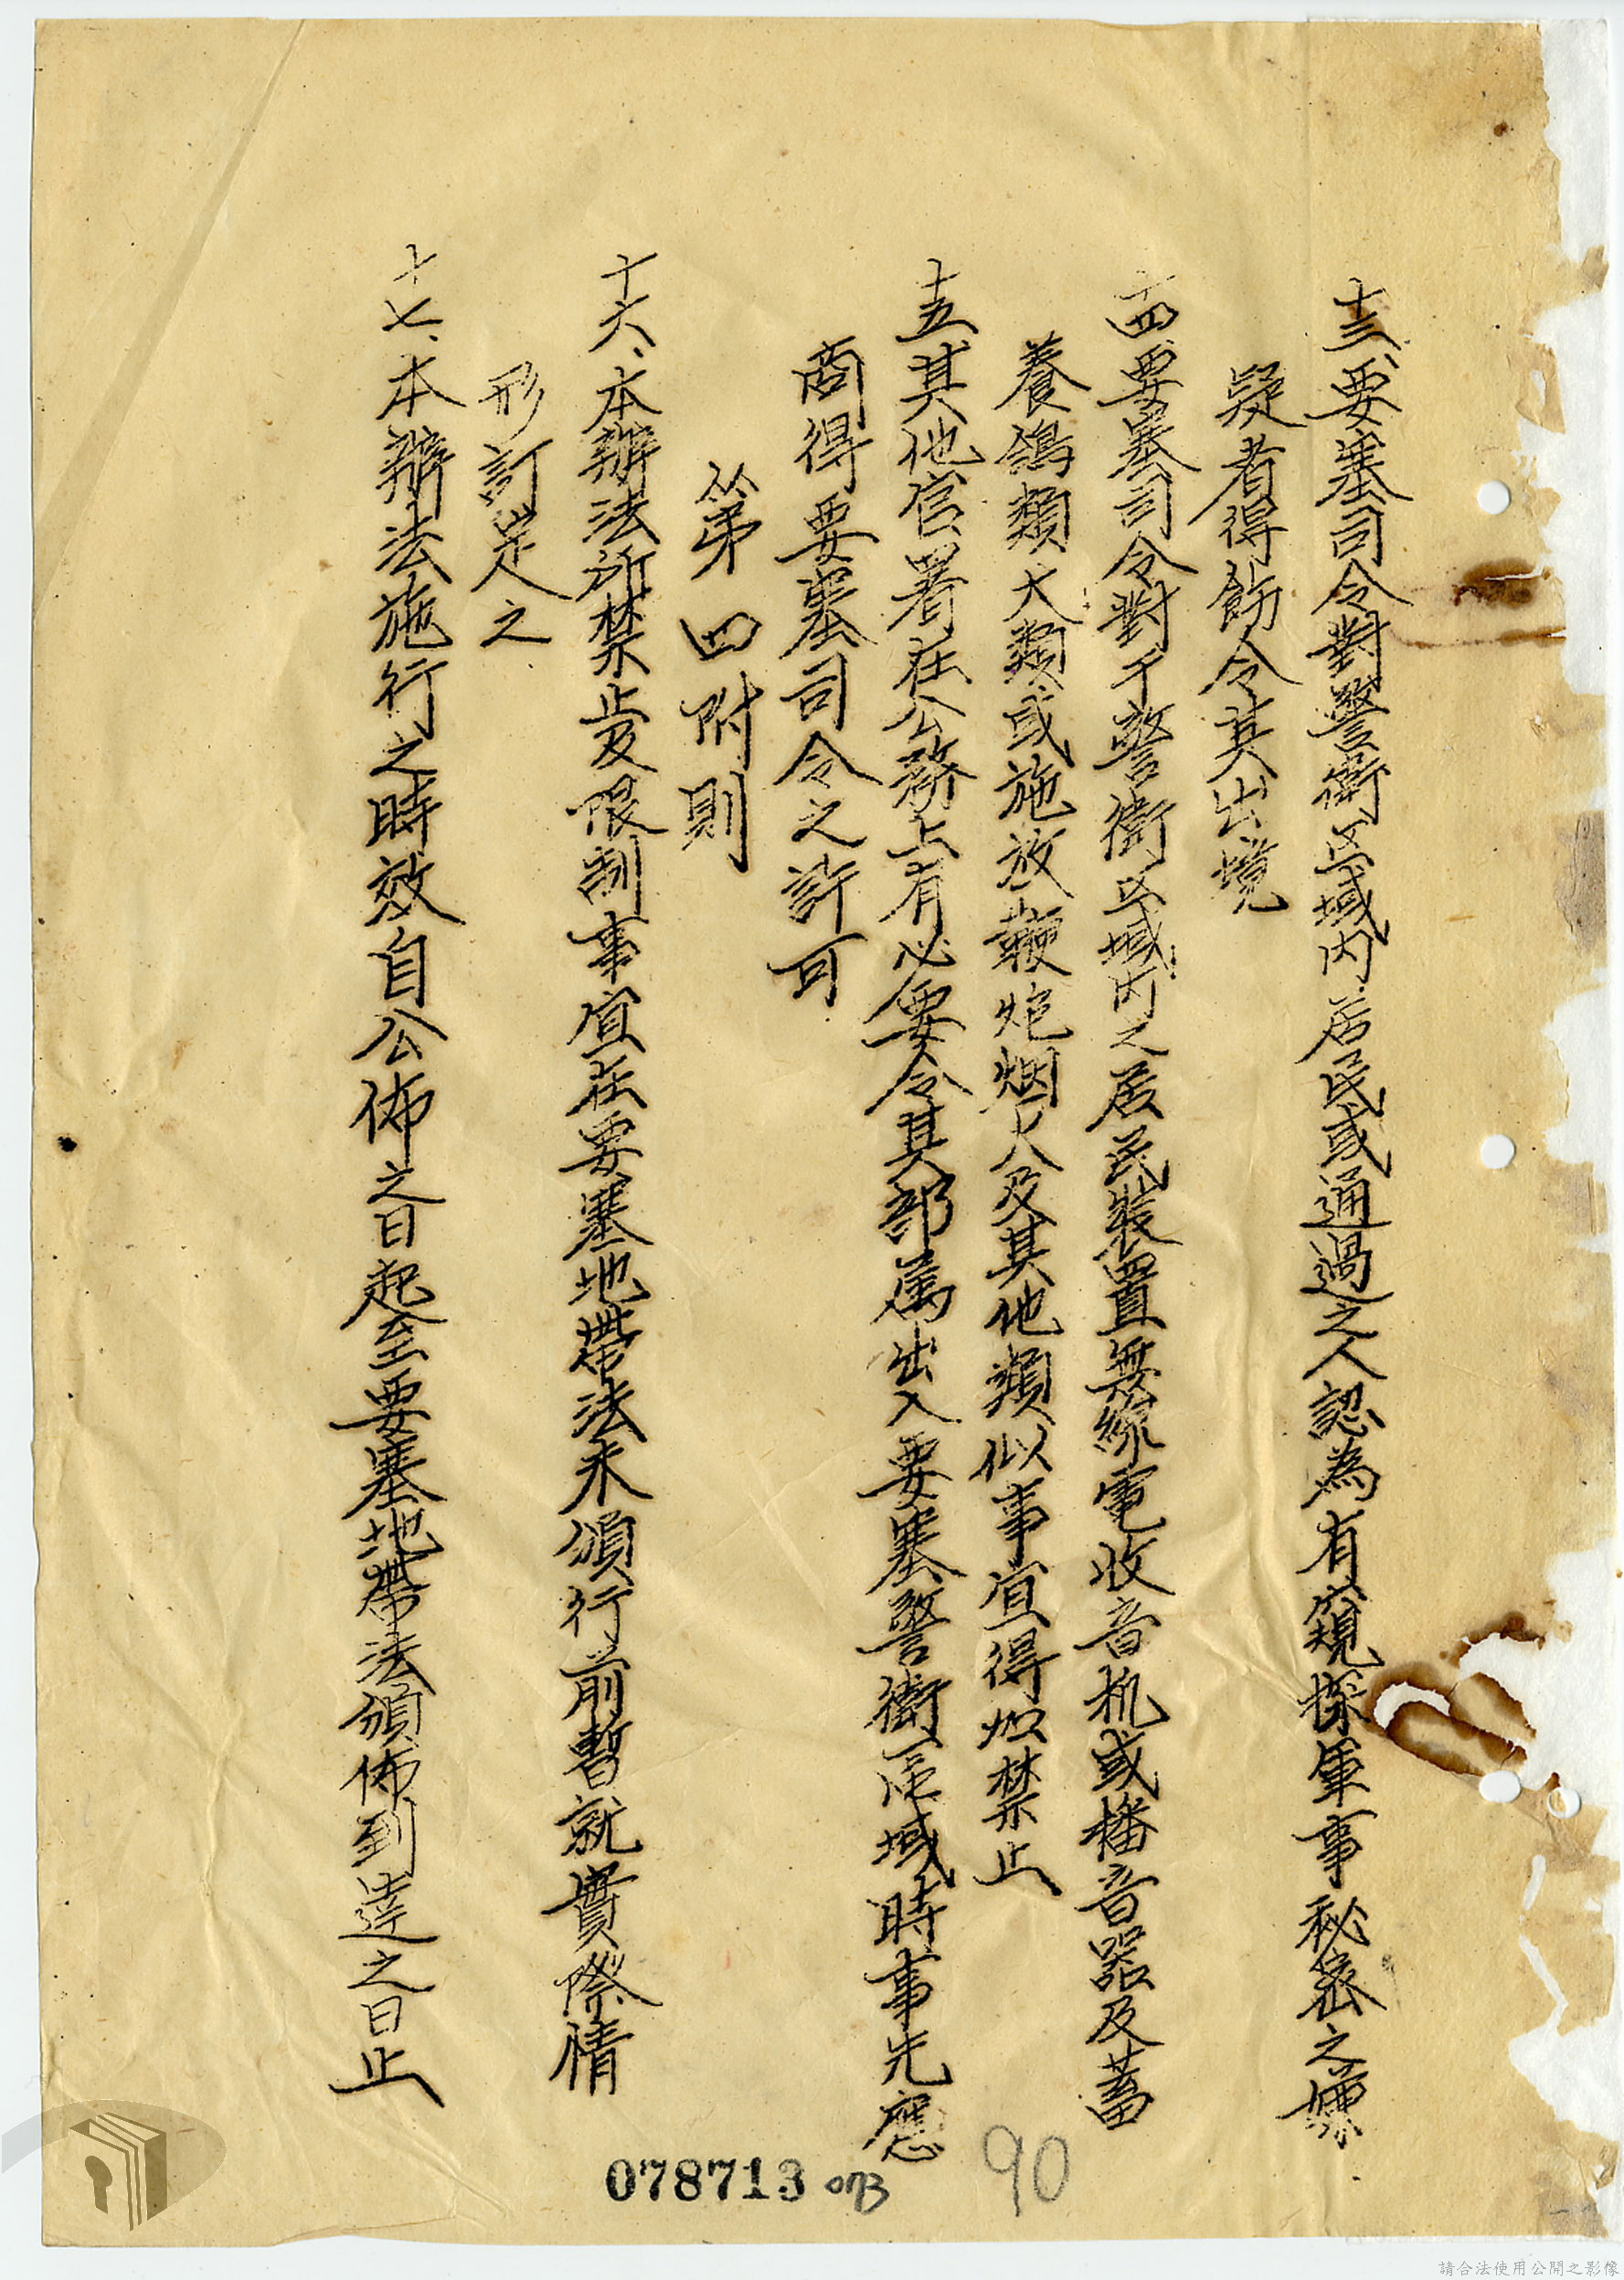 十三、要塞司令對警衛区域内居民或通過之人認為有窺探軍事秘密之嫌
疑者得飭令其出境
十四、要塞司令對于警衛区域内之居民裝置無線電收音机或播音器及蓄
養鴿類犬類或施放鞭炮烟火及其他類似事宜得以禁止
十五、其他官署在公務上有必要令其部属出入要塞警衛區域時事先應
商得要塞司令之許可
第四附則
十六、本辦法所禁止及限制事宜在要塞地帶法未頒行前暫就實際情
形訂定之
十七、本辦法施行之時效自公佈之日起至要塞地帶法頒佈到達之日止
078713 073
90
請合法使用公開之影像